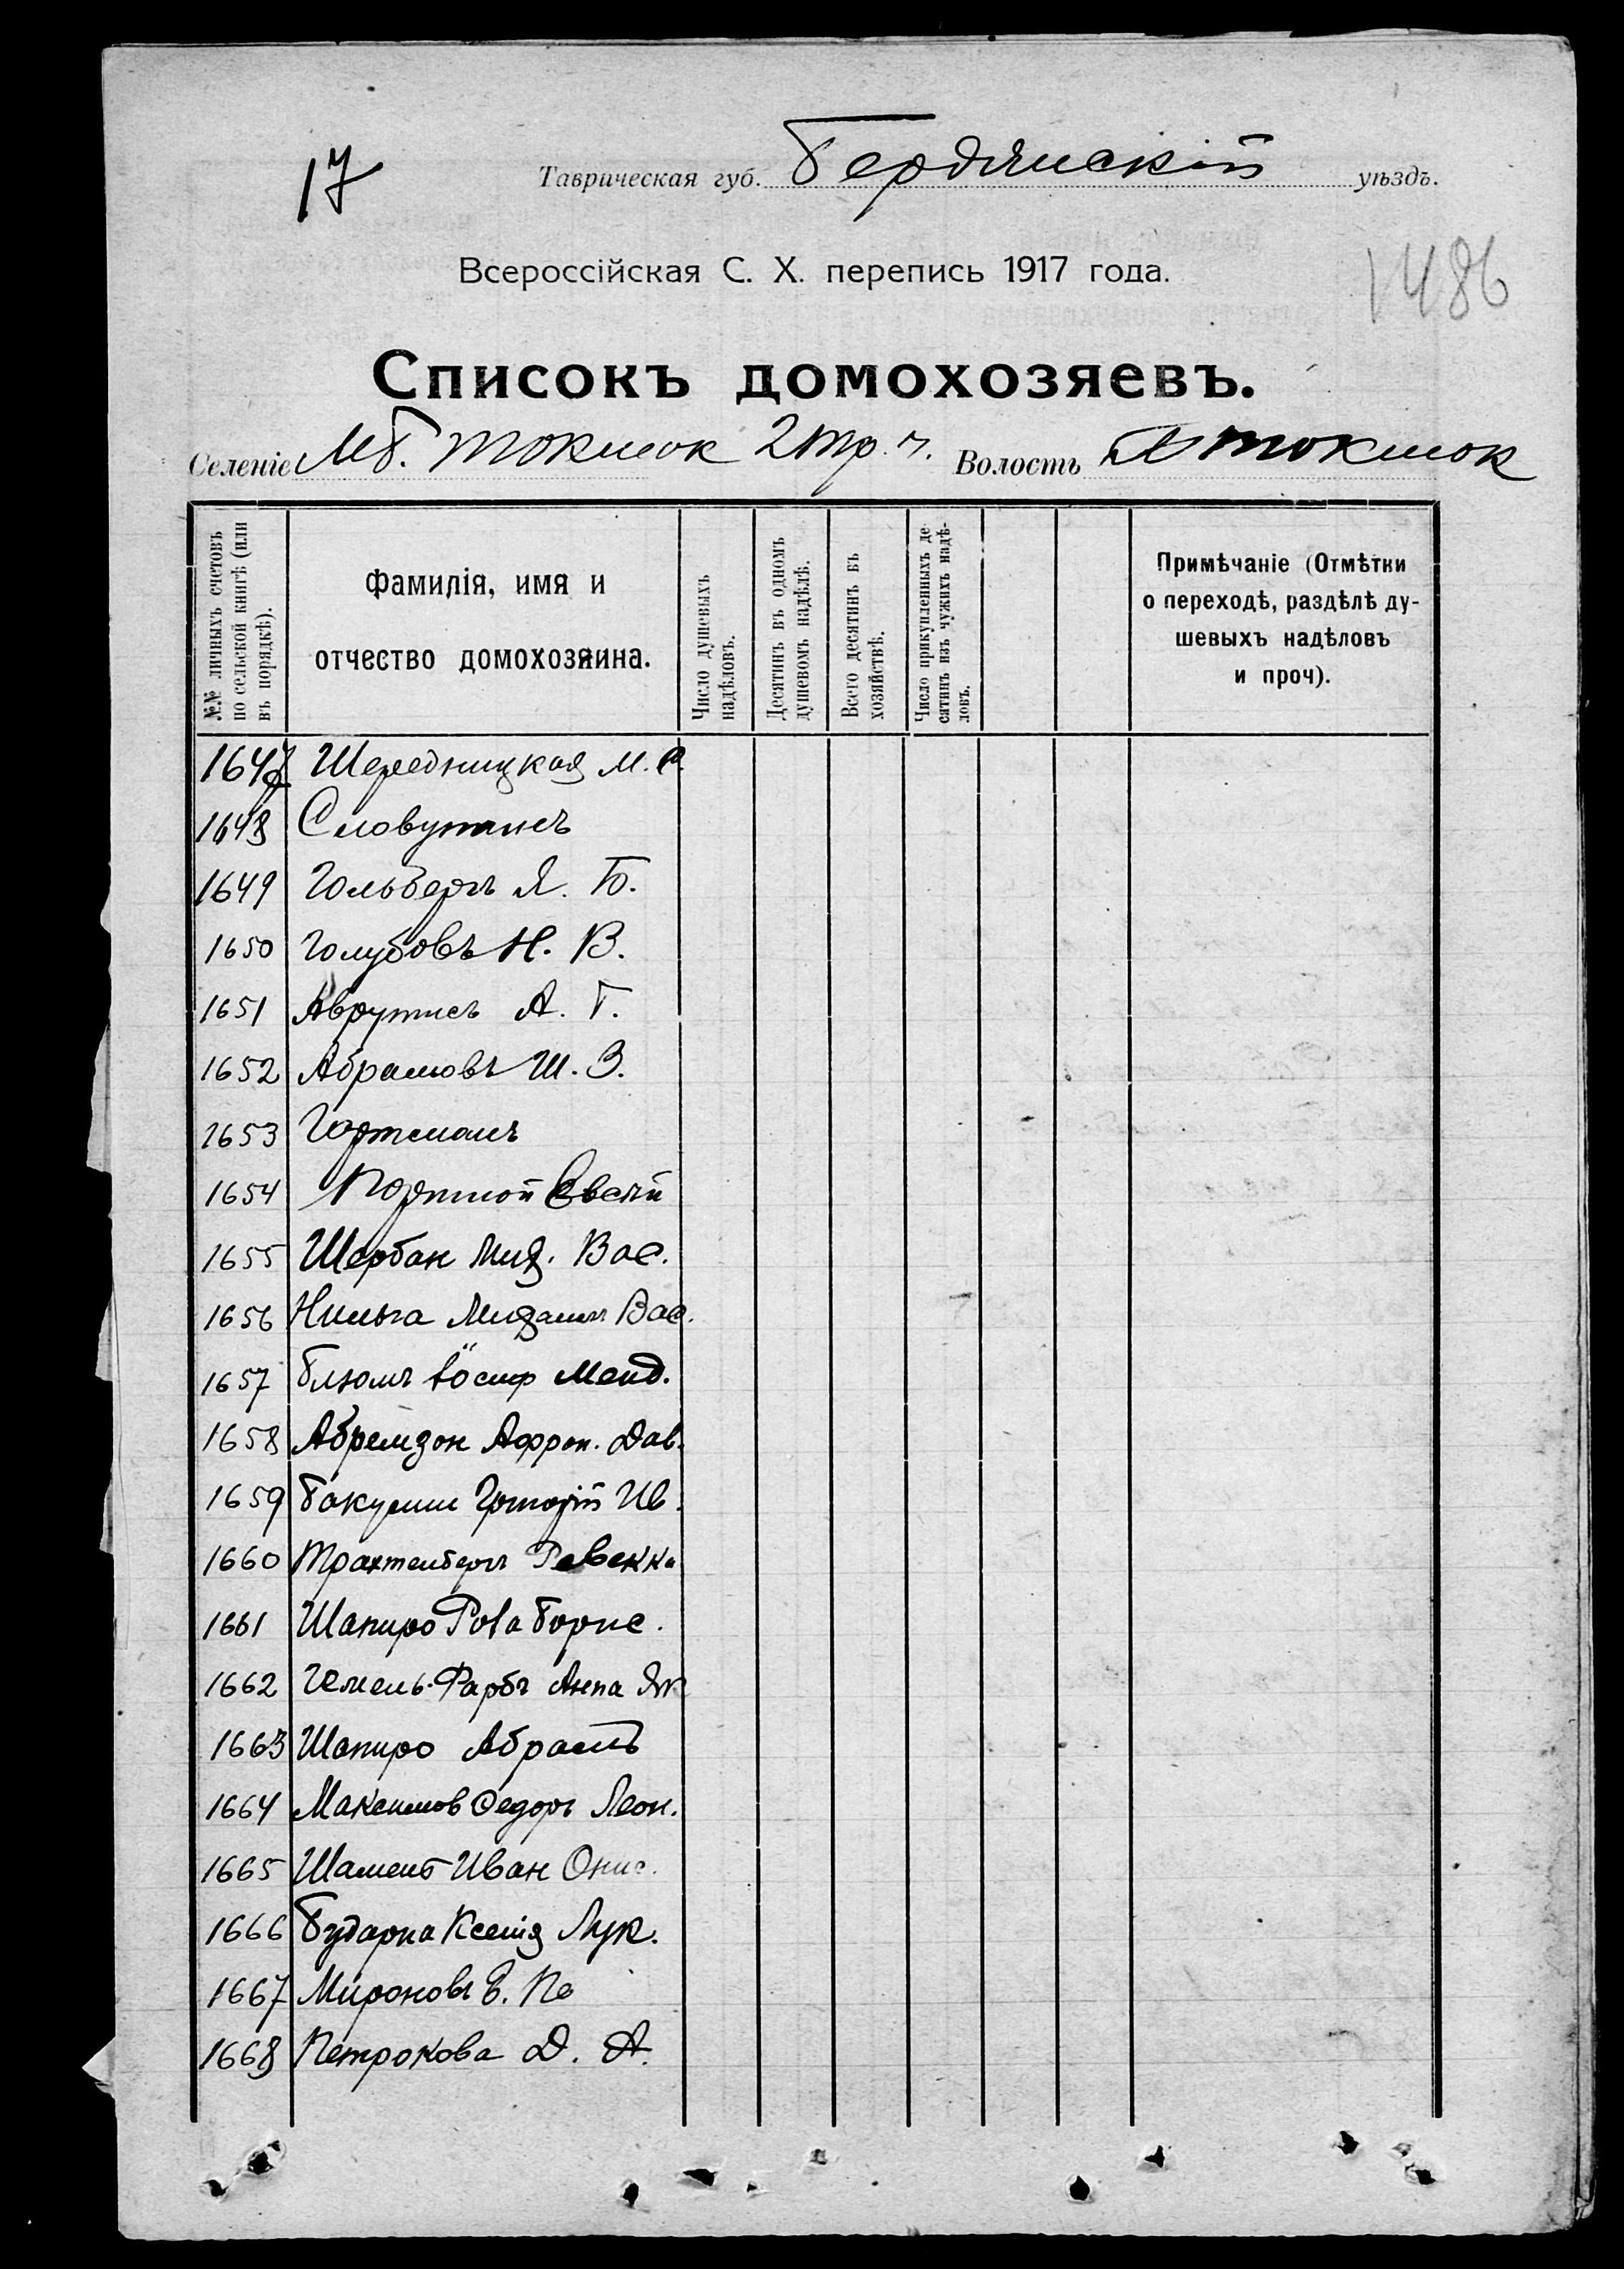 17
Таврическая губ. Бердянскій уѣздъ.
Всероссійская С. Х. перепись 1917 года.
1486
Списокъ домохозяевъ.
Селеніе Мб. Токмок 2 тр. ч. Волость Б Токмок
№№ личныхъ счетовъ по сельской книгѣ (или въ порядкѣ).
Фамилія, имя и отчество домохозяина.
Число душевыхъ надѣловъ.
Десятинъ въ одномъ душевомъ надѣлѣ.
Всего десятинъ въ хозяйствѣ.
Число прикупленныхъ десятинъ изъ чужихъ надѣловъ.
Примѣчаніе (Отмѣтки о переходѣ, раздѣлѣ душевыхъ надѣловъ и проч).
1647 Шередницкая М.
1648 Словутинъ
1649 Гольбергъ Я. Б.
1650 Голубовъ Н. В.
1651 Аврутинъ А. Г.
1652 Абрамовъ Ш. З.
1653 Гортманъ
1654 Портной Евсѣй
1655 Щербан Мих. Вас.
1656 Михаилъ Вас.
1657 Блюмъ Іосиф Менд.
1658 Абрамзон Дав.
1659 Бакулин Григорій Ив.
1660 Трахтенбергъ Ревекка
1661 Шапиро Борис.
1662 Гемель-Фарбъ Анна Як
1663 Шапиро Абрамъ
1664 Максимов Федоръ Леон.
1665 Шамент Иван Онис.
1666 Бударна Ксенія Лук.
1667 Мироновъ
1668 Петрокова Д. А.